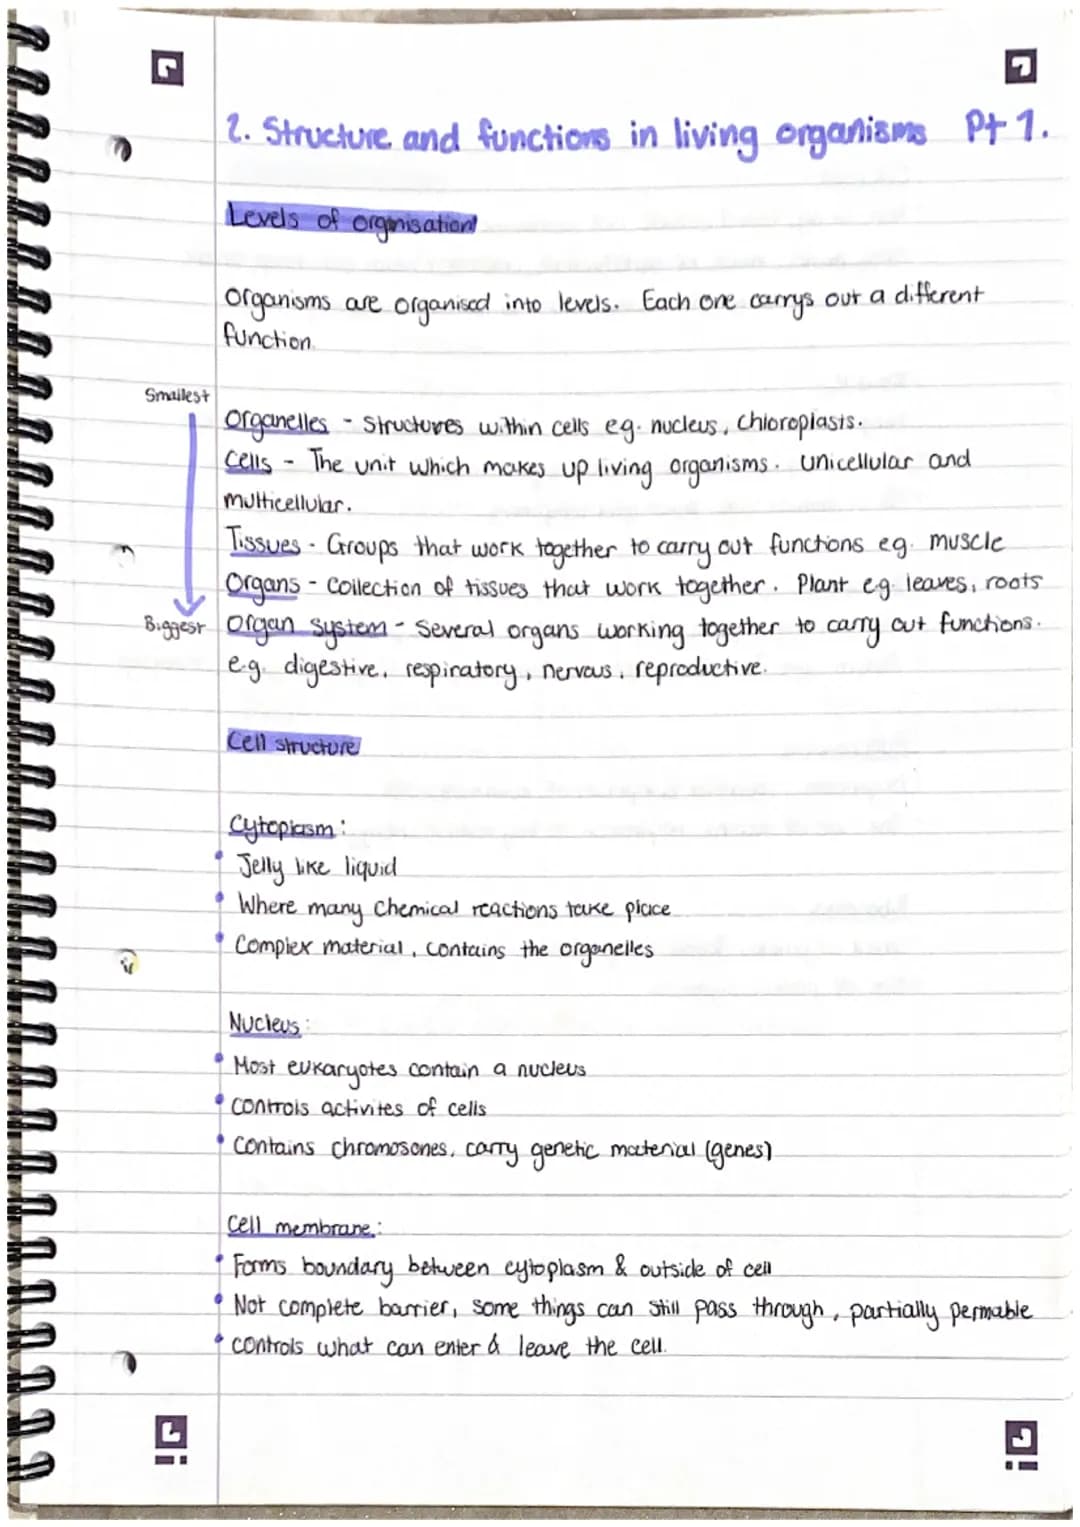 2. Structure and functions in living organisms Pt 1.
Levels of organisation
Organisms are organised into levels. Each one carrys out a different
function.
Smallest
Organelles - Structures within cells eg. nucleus, Chloroplasts.
Cells - The unit which makes up living organisms. Unicellular and
multicellular.
Tissues - Groups that work together to carry out functions eg. muscle
Organs - Collection of tissues that work together. Plant eg. leaves, roots
Biggest
Organ system - Several organs working together to carry out functions.
e.g. digestive, respiratory, nervous, reproductive.
Cell structure
Cytoplasm:
• Jelly like liquid
• Where many Chemical reactions take place
• Complex material, contains the organelles
Nucleus:
• Most eukaryotes contain a nucleus
• Controls activites of cells
• Contains chromosones, carry genetic material (genes)
Cell membrane:
• Forms boundary between cytoplasm & outside of cell
• Not complete barrier, some things can still pass through, partially permable
• controls what can enter & leave the cell.